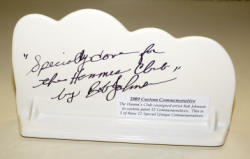 "Specialy done for
the Hamms Club"
by Bob Johnson
2009 Custom Commemorative
The Hamm's Club consigned artist Bob Johnson
to custom paint 12 Commemoratives. This is
1 of those 12 Special Unique Commemoratives.